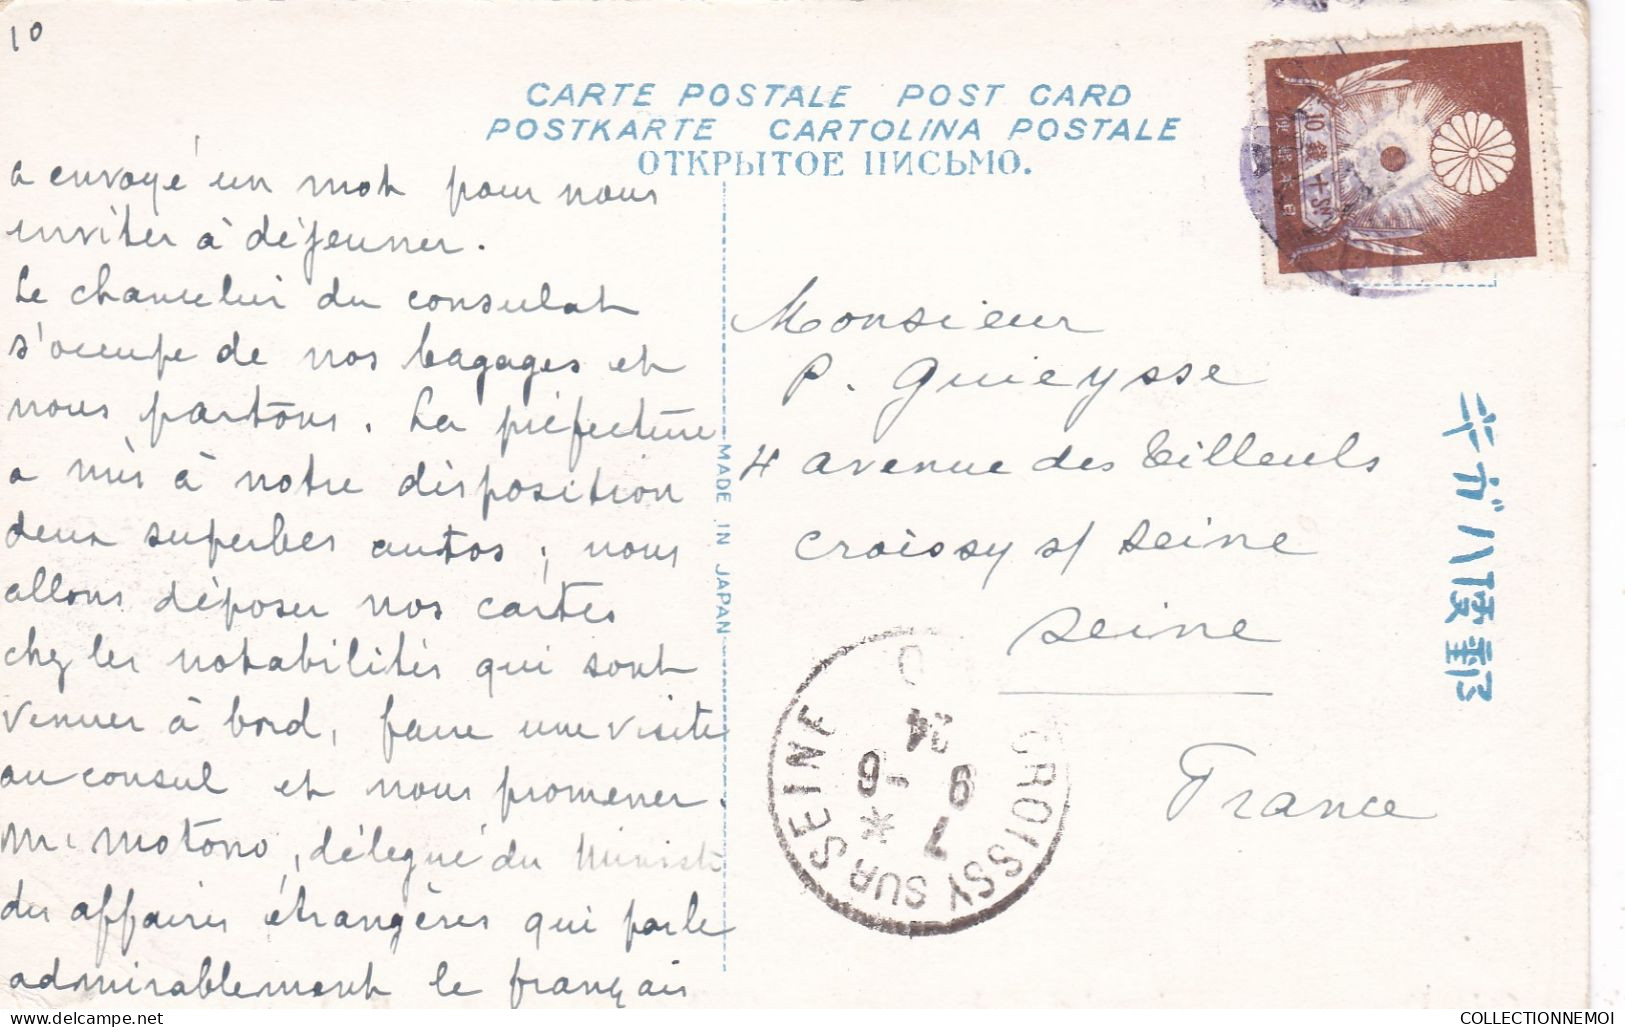 10
CARTE POSTALE POST CARD
POSTKARTE CARTOLINA POSTALE
ОТКРЫТОЕ ПИСЬМО.
a envoyé un mot pour nous
inviter à déjeuner.
Le chancelier du consulat
s'occupe de nos bagages et
nous partons. La préfecture
a mis à notre disposition
deux superbes autos, nous
allons déposer nos cartes
chez les notabilités qui sont
venues à bord, faire une visite
au consul et nous promener.
Mr Motono, délégué du Ministe
des affaires étrangères qui parle
admirablement le français
MADE IN JAPAN
Monsieur
P. Guieysse
4 avenue des Tilleuls
Croissy s/ Seine
Seine
France
10 SN
CROISSY SUR SEINE
24
COLLECTIONNEMOI
www.delcampe.net